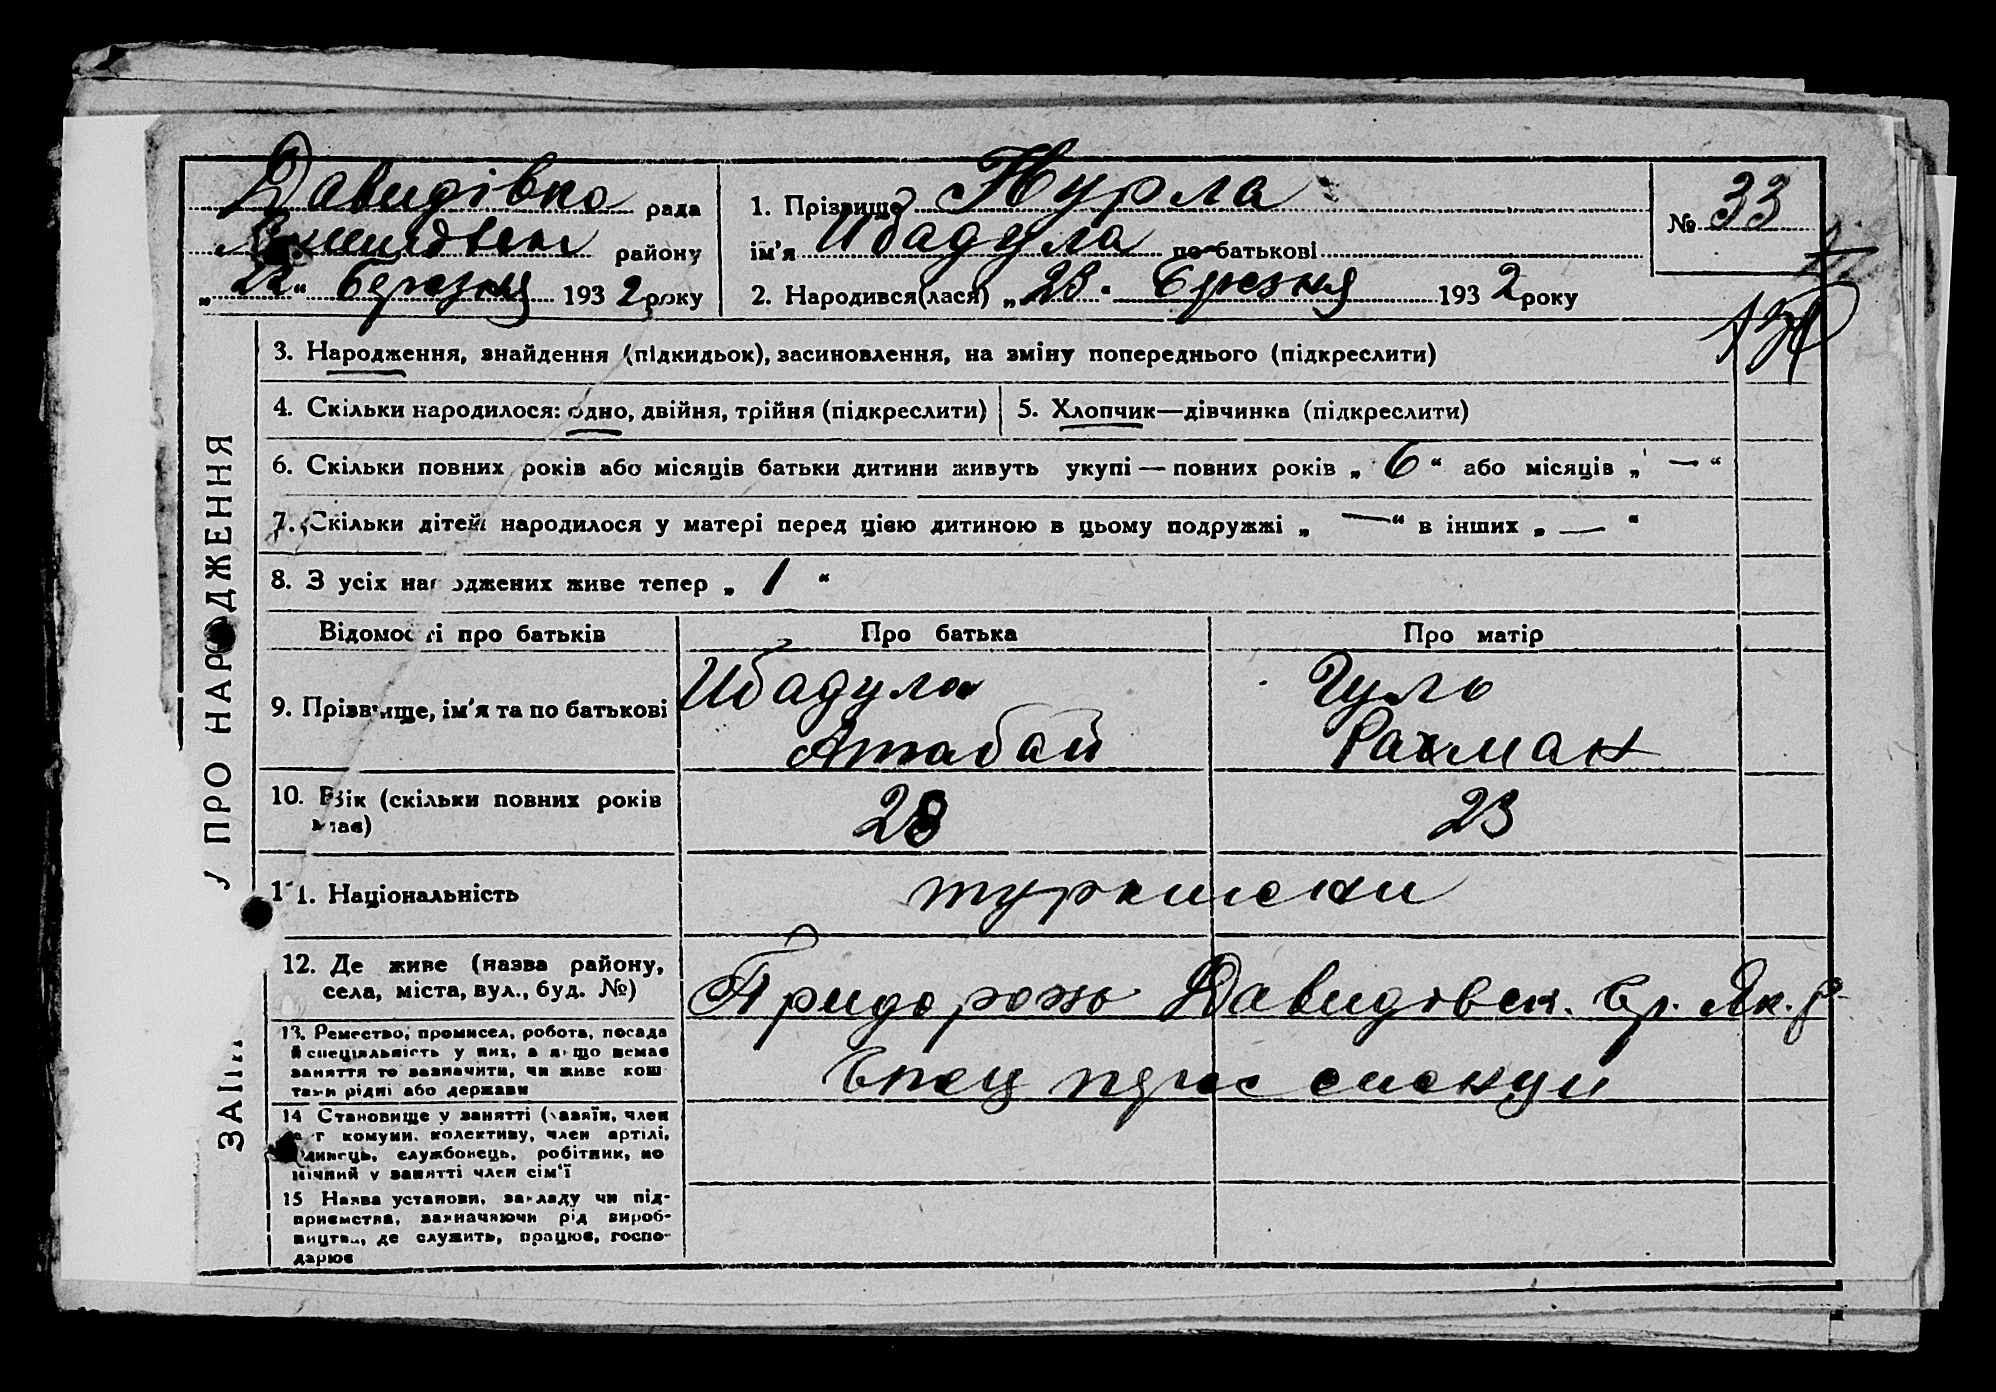 Давидівка рада
району
„22“ березня 1932 року
1. Прізвище Нурла
ім'я Ибадула по-батькові
2. Народився(лася) „23. березня 1932 року
№ 33
3. Народження, знайдення (підкидьок), засиновлення, на зміну попереднього (підкреслити)
4. Скільки народилося: одно, двійня, трійня (підкреслити)
5. Хлопчик—дівчинка (підкреслити)
6. Скільки повних років або місяців батьки дитини живуть укупі — повних років „6“ або місяців „—“
7. Скільки дітей народилося у матері перед цією дитиною в цьому подружжі „—“ в інших „—“
8. З усіх народжених живе тепер „1“
Відомості про батьків
Про батька
Про матір
9. Прізвище, ім'я та по батькові
Ибадула
Атабай
Гуль
Рахман
10. Вік (скільки повних років
має)
28
23
11. Національність
12. Де живе (назва району,
села, міста, вул., буд. №)
Придорожь Давидовск. Ср. Як. р.
13. Ремество, промисел, робота, посада
й спеціяльність у них, а якщо немає
заняття то зазначити, чи живе кош
тами рідні або держави
Спец
14 Становище у занятті (хазяїн, член
с г комуни, колективу, член артілі,
одинець, службовець, робітник, по
мічний у занятті член сім'ї
15 Назва установи, закладу чи під-
приємства, зазначаючи рід вироб-
ництва, де служить, працює, госпо-
дарює
ПРО НАРОДЖЕННЯ